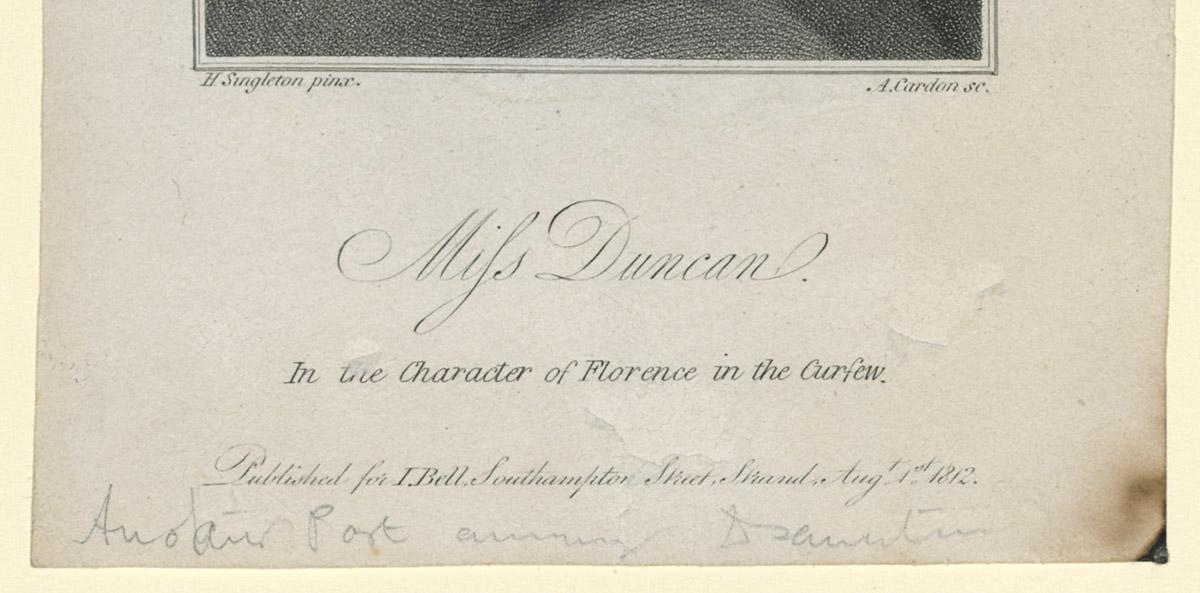 H Singleton pinx.
A. Cardon sc.
Miſs Duncan.
In the Character of Florence in the Curfew.
Published for I. Bell, Southampton Street, Strand, Augt. 1st. 1812.
Another Port